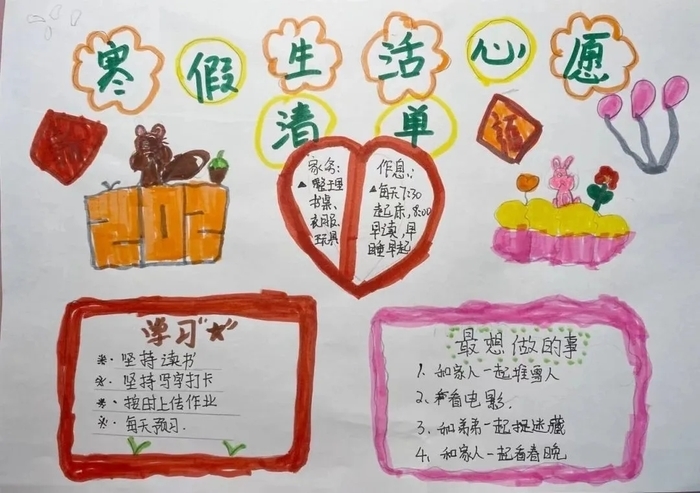 寒假生活心愿
清单
202
家务:
▲整理
书桌、
衣服、
玩具
作息:
▲每天7:30
起床,8:00
早读,早
睡早起
学习"★"
※. 坚持读书
※. 坚持写字打卡
※. 按时上传作业
※. 每天预习.
最想做的事
1. 和家人一起堆雪人
2、看电影.
3、和弟弟一起捉迷藏
4、和家人一起看春晚